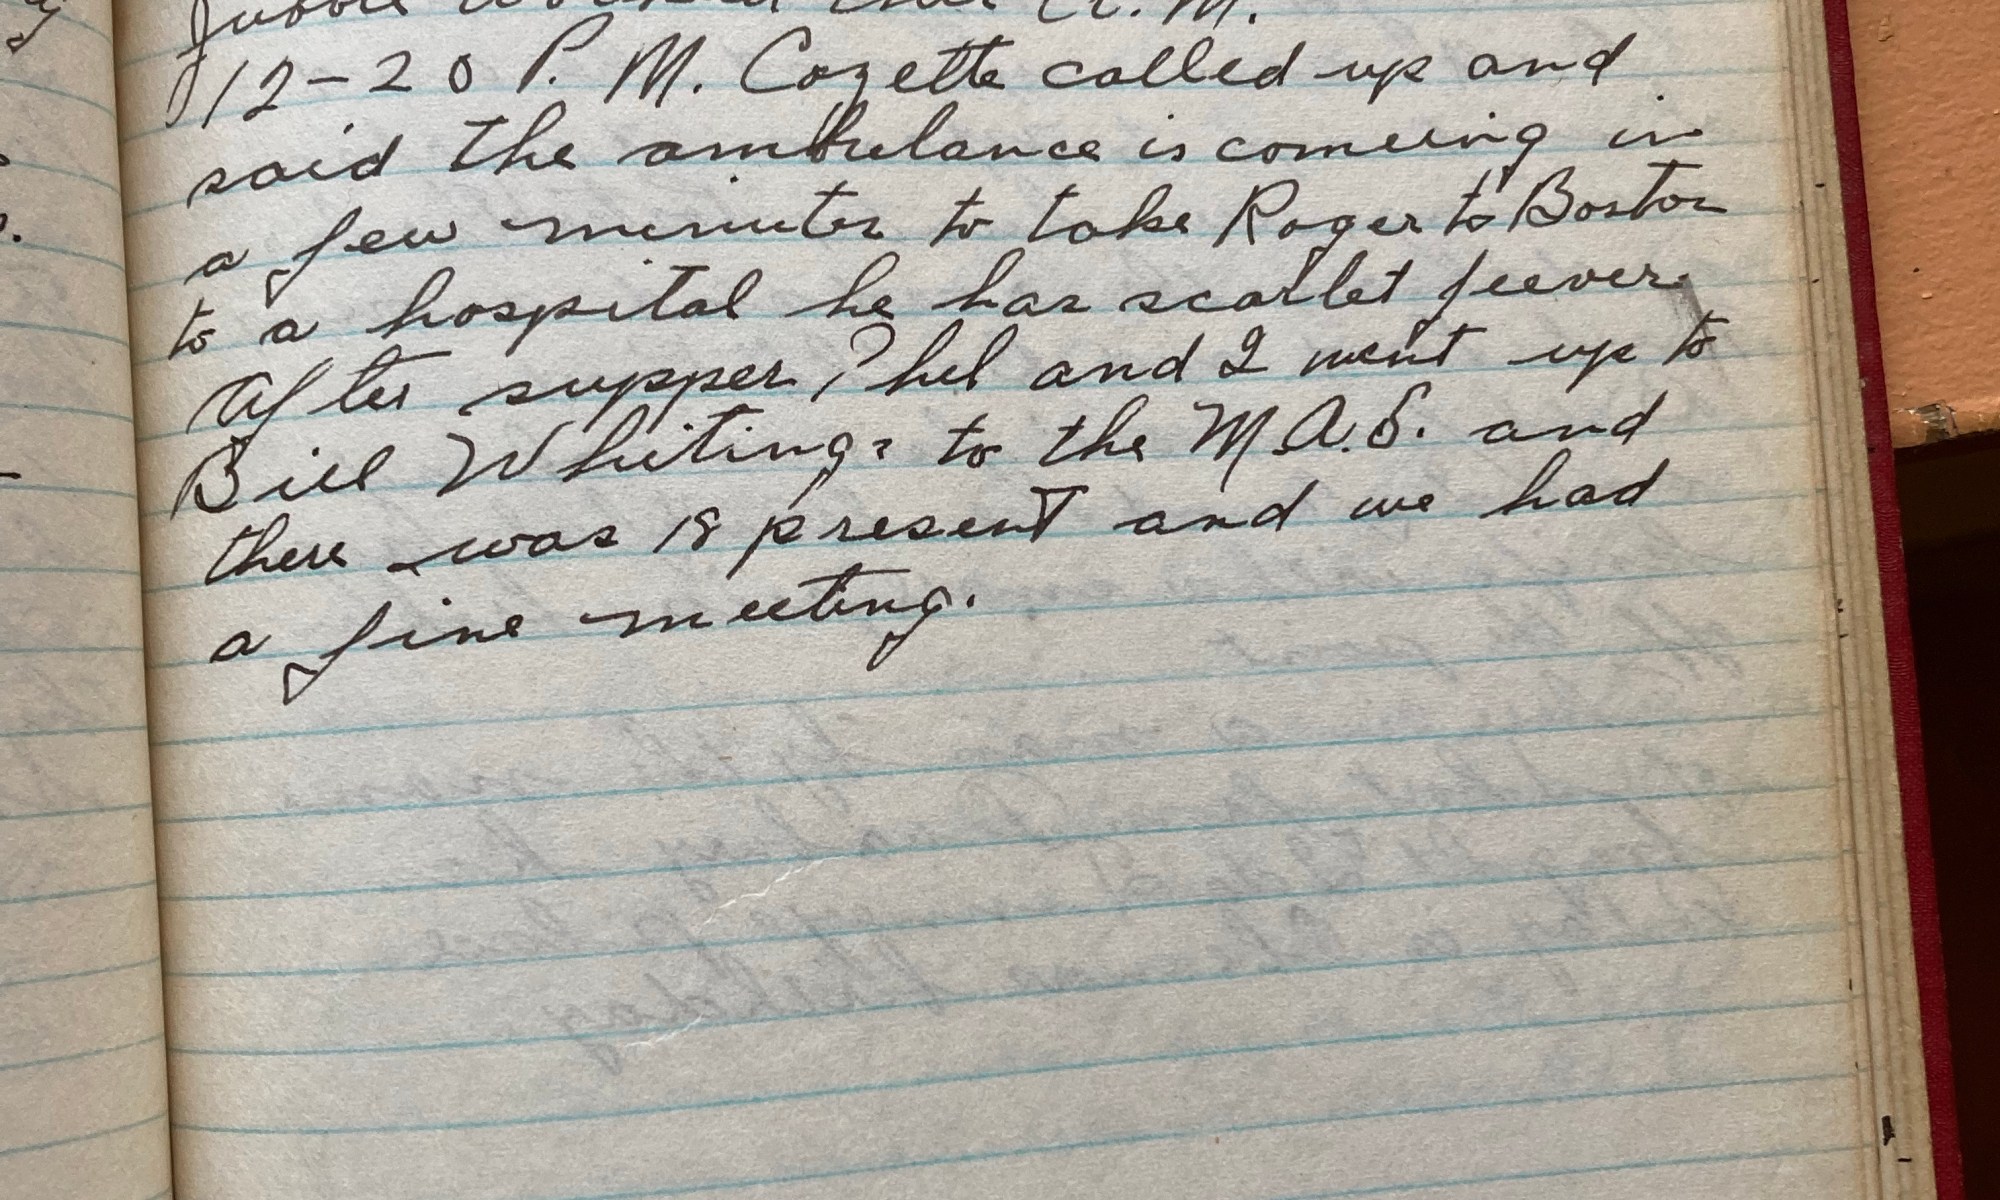 worked this A. M.
12-20 P. M. Cozette called up and
said the ambulance is comeing in
a few minutes to take Roger to Boston
to a hospital he has scarlet feever.
After supper Phil and I went up to
Bill Whitings to the M.A.S. and
there was 18 present and we had
a fine meeting.